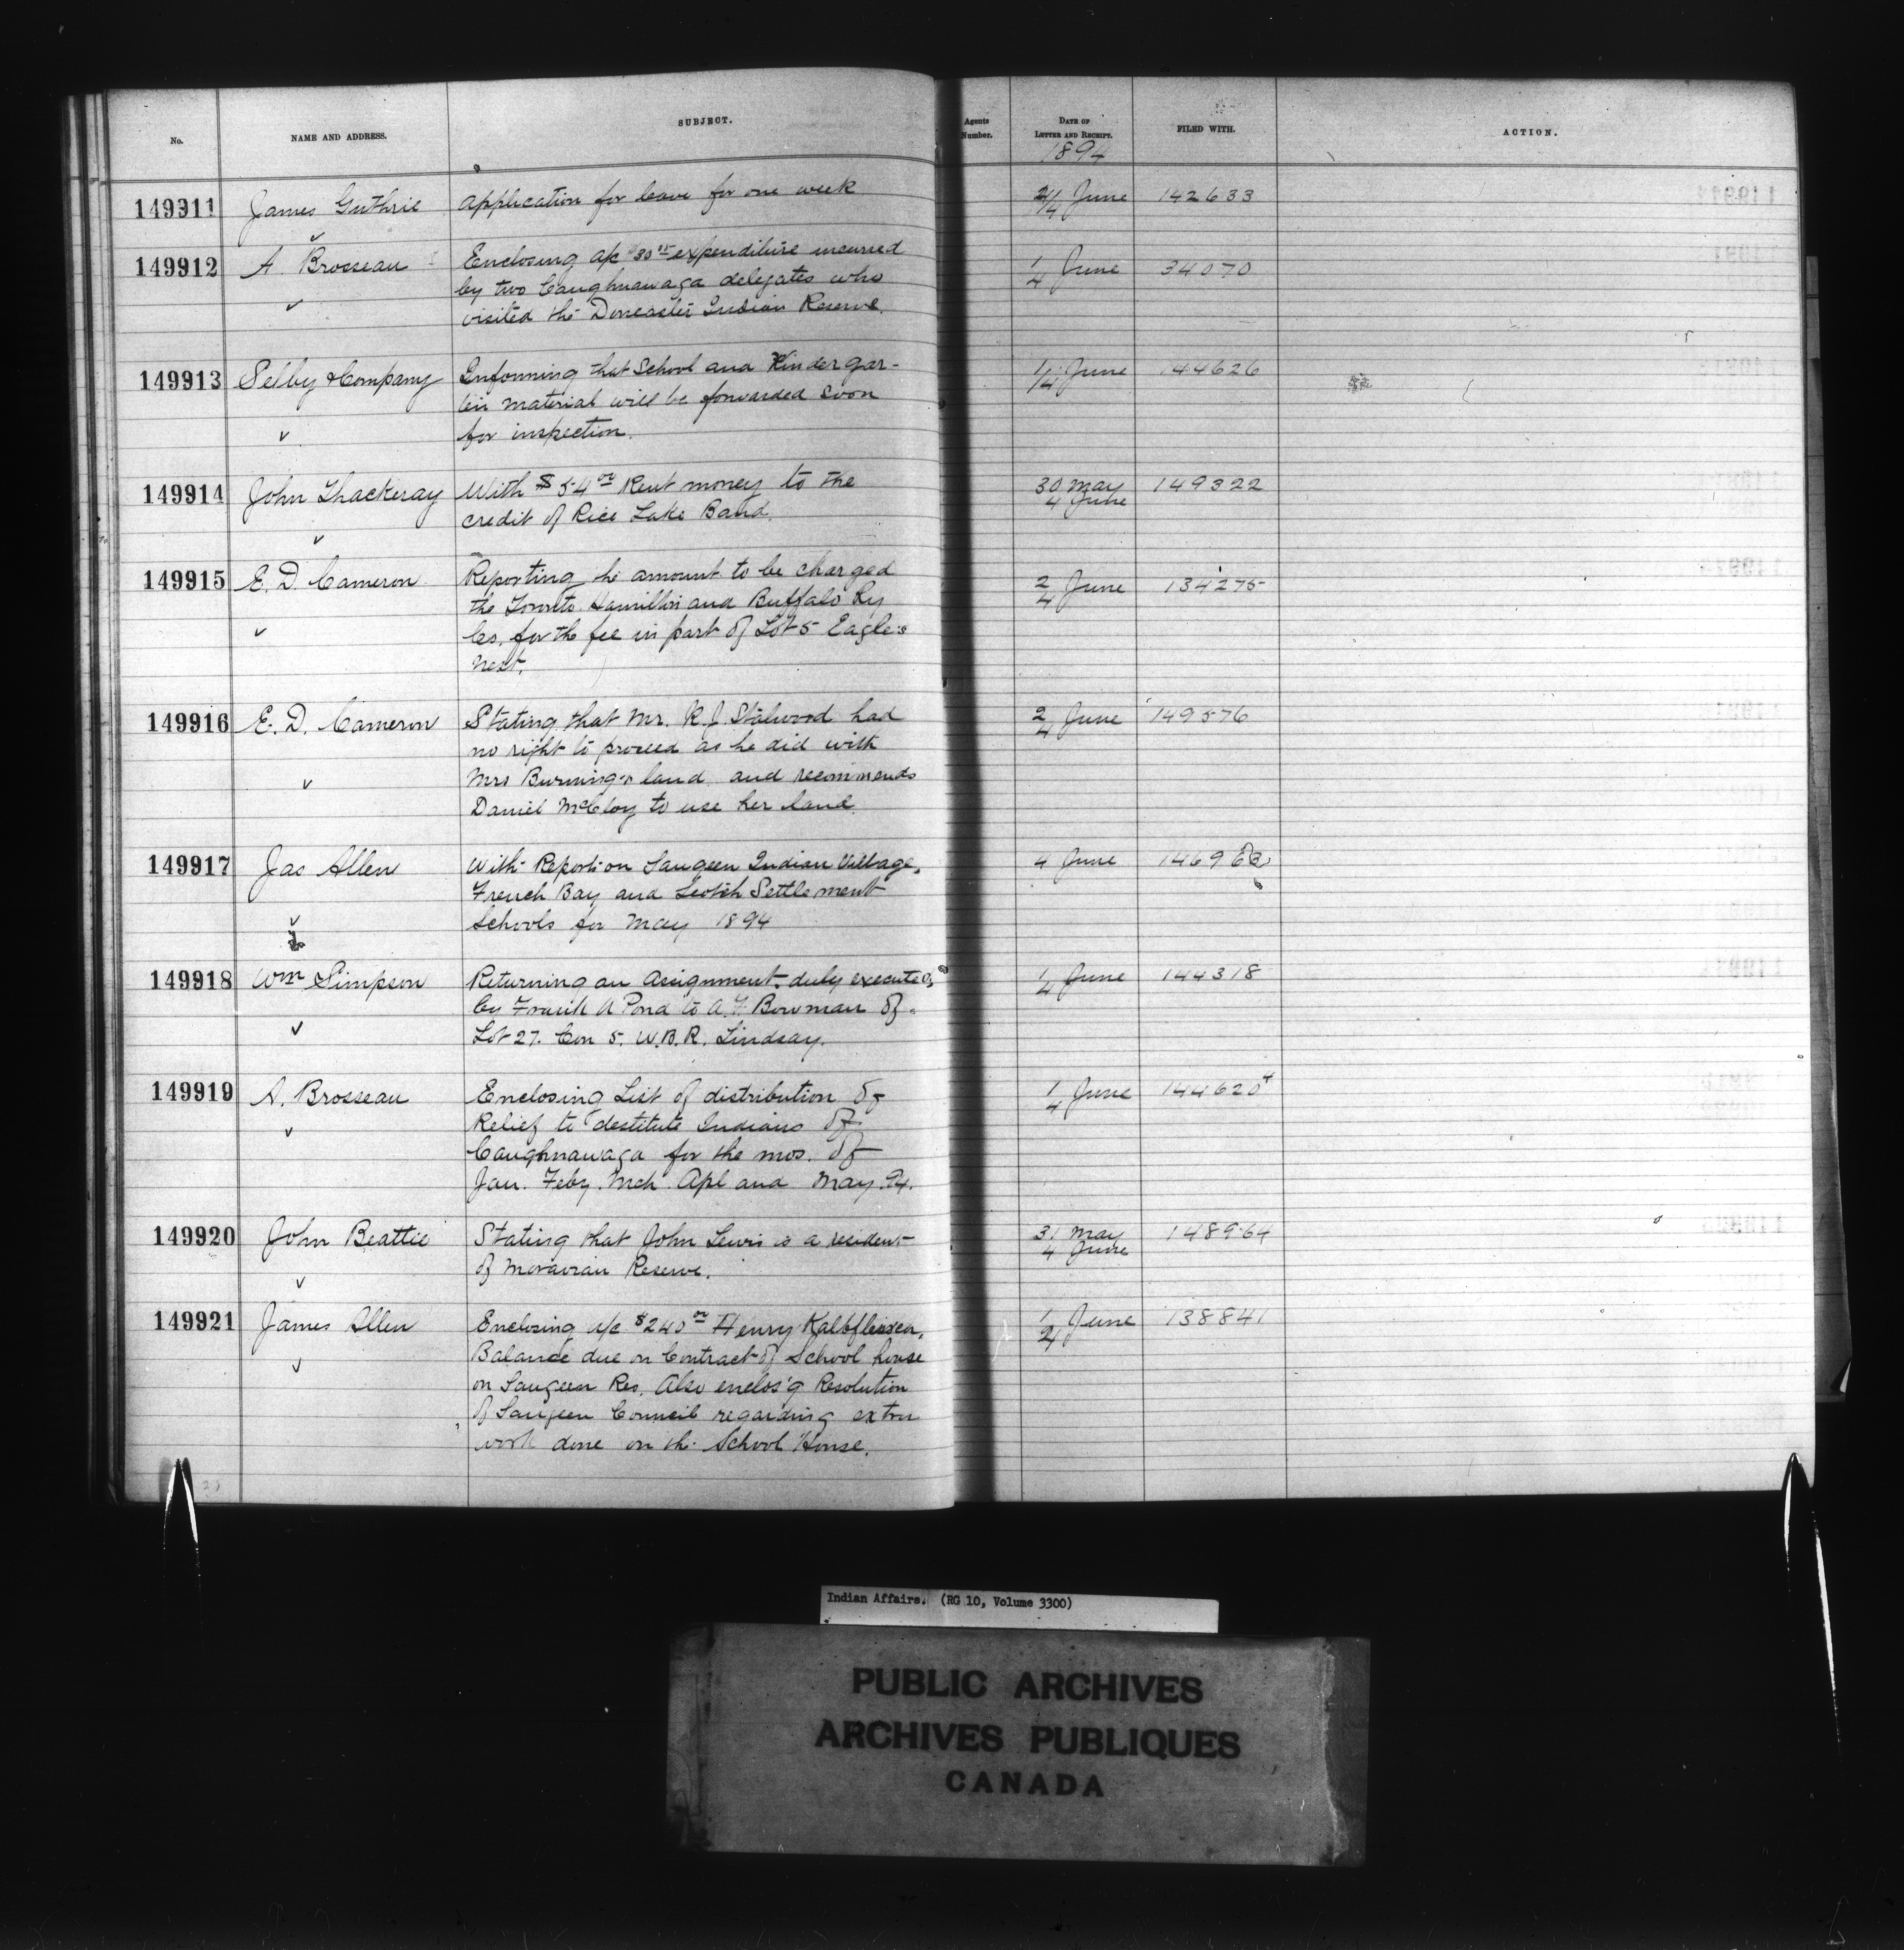 No. NAME AND ADDRESS. SUBJECT. Agents Number. DATE OF LETTER AND RECEIPT. FILED WITH. ACTION.
1894
149911 James Guthrie Application for leave for one week 2/4 June 142633
149912 A. Brosseau Enclosing a/c $30 expenditure incurred 1/4 June 34070
by two Caughnawaga delegates who
visited the Doncaster Indian Reserve.
149913 Selby & Company Informing that School and Kindergar- 1/4 June 144626
ten material will be forwarded soon
for inspection.
149914 John Thackeray With $54 00 Rent money to the 30 May 149322
credit of Rice Lake Band. 4 June
149915 E. D. Cameron Reporting the amount to be charged 2/4 June 134275
the Toronto Hamilton and Buffalo Ry
Co. for the fee in part of Lot 5 Eagle's
nest.
149916 E. D. Cameron Stating that Mr. R. J. Stalwood had 2/4 June 149576
no right to proceed as he did with
Mrs Burning's land and recommends
Daniel McCloy to use her land.
149917 Jas Allen With Report on Saugeen Indian Village, 4 June
French Bay and Scotch Settlement
Schools for May 1894
149918 Wm Simpson Returning an Assignment duly executed 1/4 June 144318
by Frank A Pond to A. F. Bowman of
Lot 27. Con 5. W.B.R. Lindsay.
149919 A. Brosseau Enclosing List of distribution of 1/4 June 144620
Relief to destitute Indians of
Caughnawaga for the mos. of
Jan. Feby. Mch. Apl and May 94.
149920 John Beattie Stating that John Lewis is a resident 31 May 148964
of Moravian Reserve. 4 June
149921 James Allen Enclosing a/c $240 00 Henry 1/4 June 138841
Balance due on Contract of School house
on Saugeen Res. Also enclos'g Resolution
of Saugeen Council regarding extra
work done on the School House.
Indian Affairs. (RG 10, Volume 3300)
PUBLIC ARCHIVES
ARCHIVES PUBLIQUES
CANADA